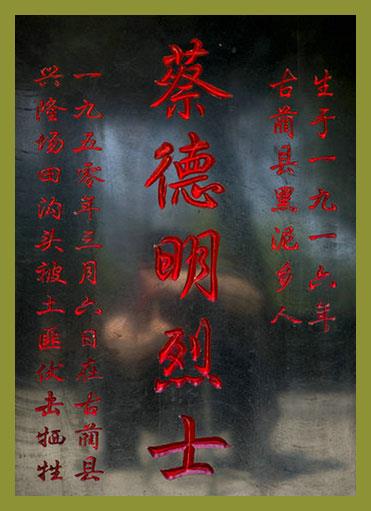 生于一九一六年
古蔺县黑泥乡人
蔡德明烈士
一九五零年三月六日在古蔺县
兴隆场田沟头被土匪伏击牺牲